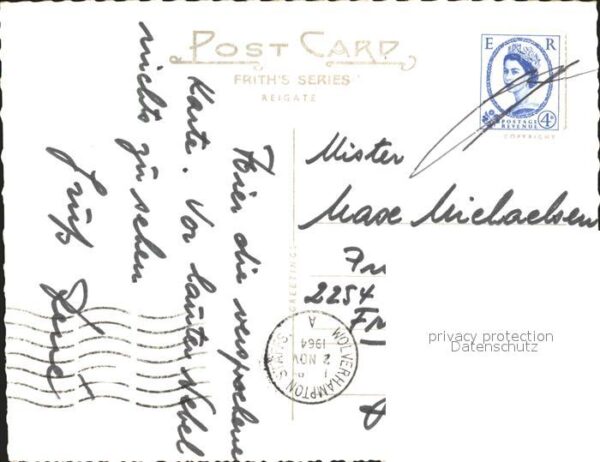 POST CARD
FRITH'S SERIES
REIGATE
E R
POSTAGE
REVENUE
4D
COPYRIGHT
Hier die versprochene
Karte. Vor lauter Nebel
nichts zu sehen
Gruß
GREETINGS
Mister
Max Michaelsen
2254
WOLVERHAMPTON
A
2 NOV
1964
privacy protection
Datenschutz